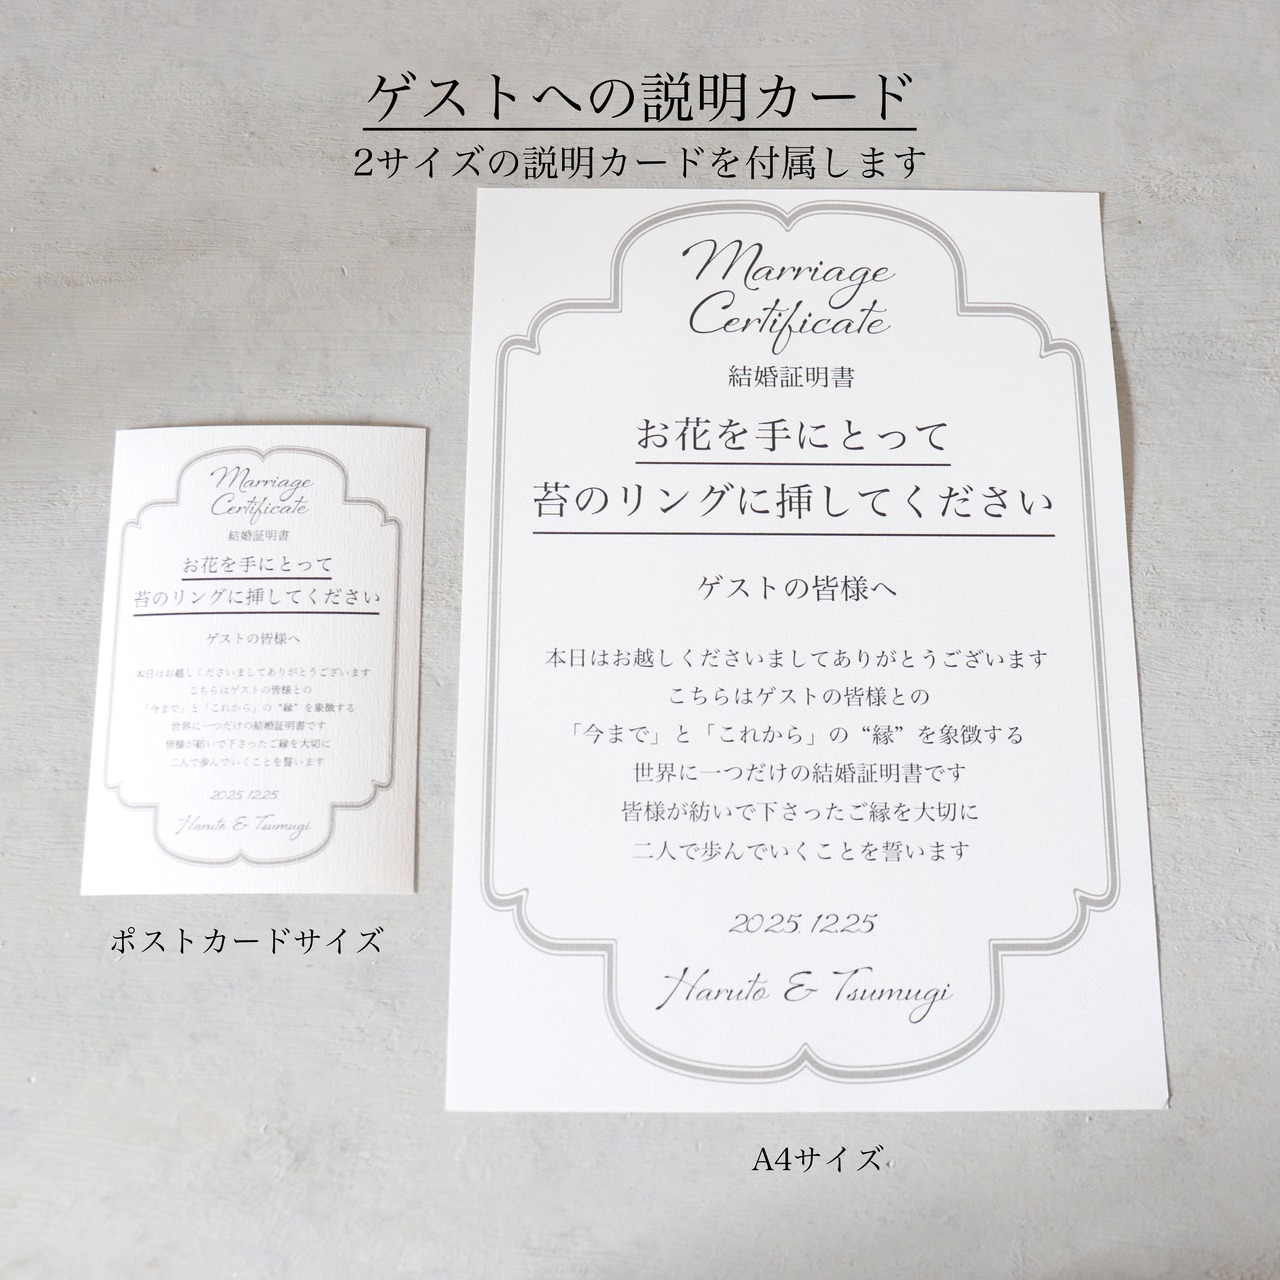 ゲストへの説明カード
2サイズの説明カードを付属します
Marriage
Certificate
結婚証明書
お花を手にとって
苔のリングに挿してください
ゲストの皆様へ
本日はお越しくださいましてありがとうございます
こちらはゲストの皆様との
「今まで」と「これから」の“縁”を象徴する
世界に一つだけの結婚証明書です
皆様が紡いで下さったご縁を大切に
二人で歩んでいくことを誓います
2025.12.25
Haruto & Tsumugi
ポストカードサイズ
Marriage
Certificate
結婚証明書
お花を手にとって
苔のリングに挿してください
ゲストの皆様へ
本日はお越しくださいましてありがとうございます
こちらはゲストの皆様との
「今まで」と「これから」の“縁”を象徴する
世界に一つだけの結婚証明書です
皆様が紡いで下さったご縁を大切に
二人で歩んでいくことを誓います
2025.12.25
Haruto & Tsumugi
A4サイズ